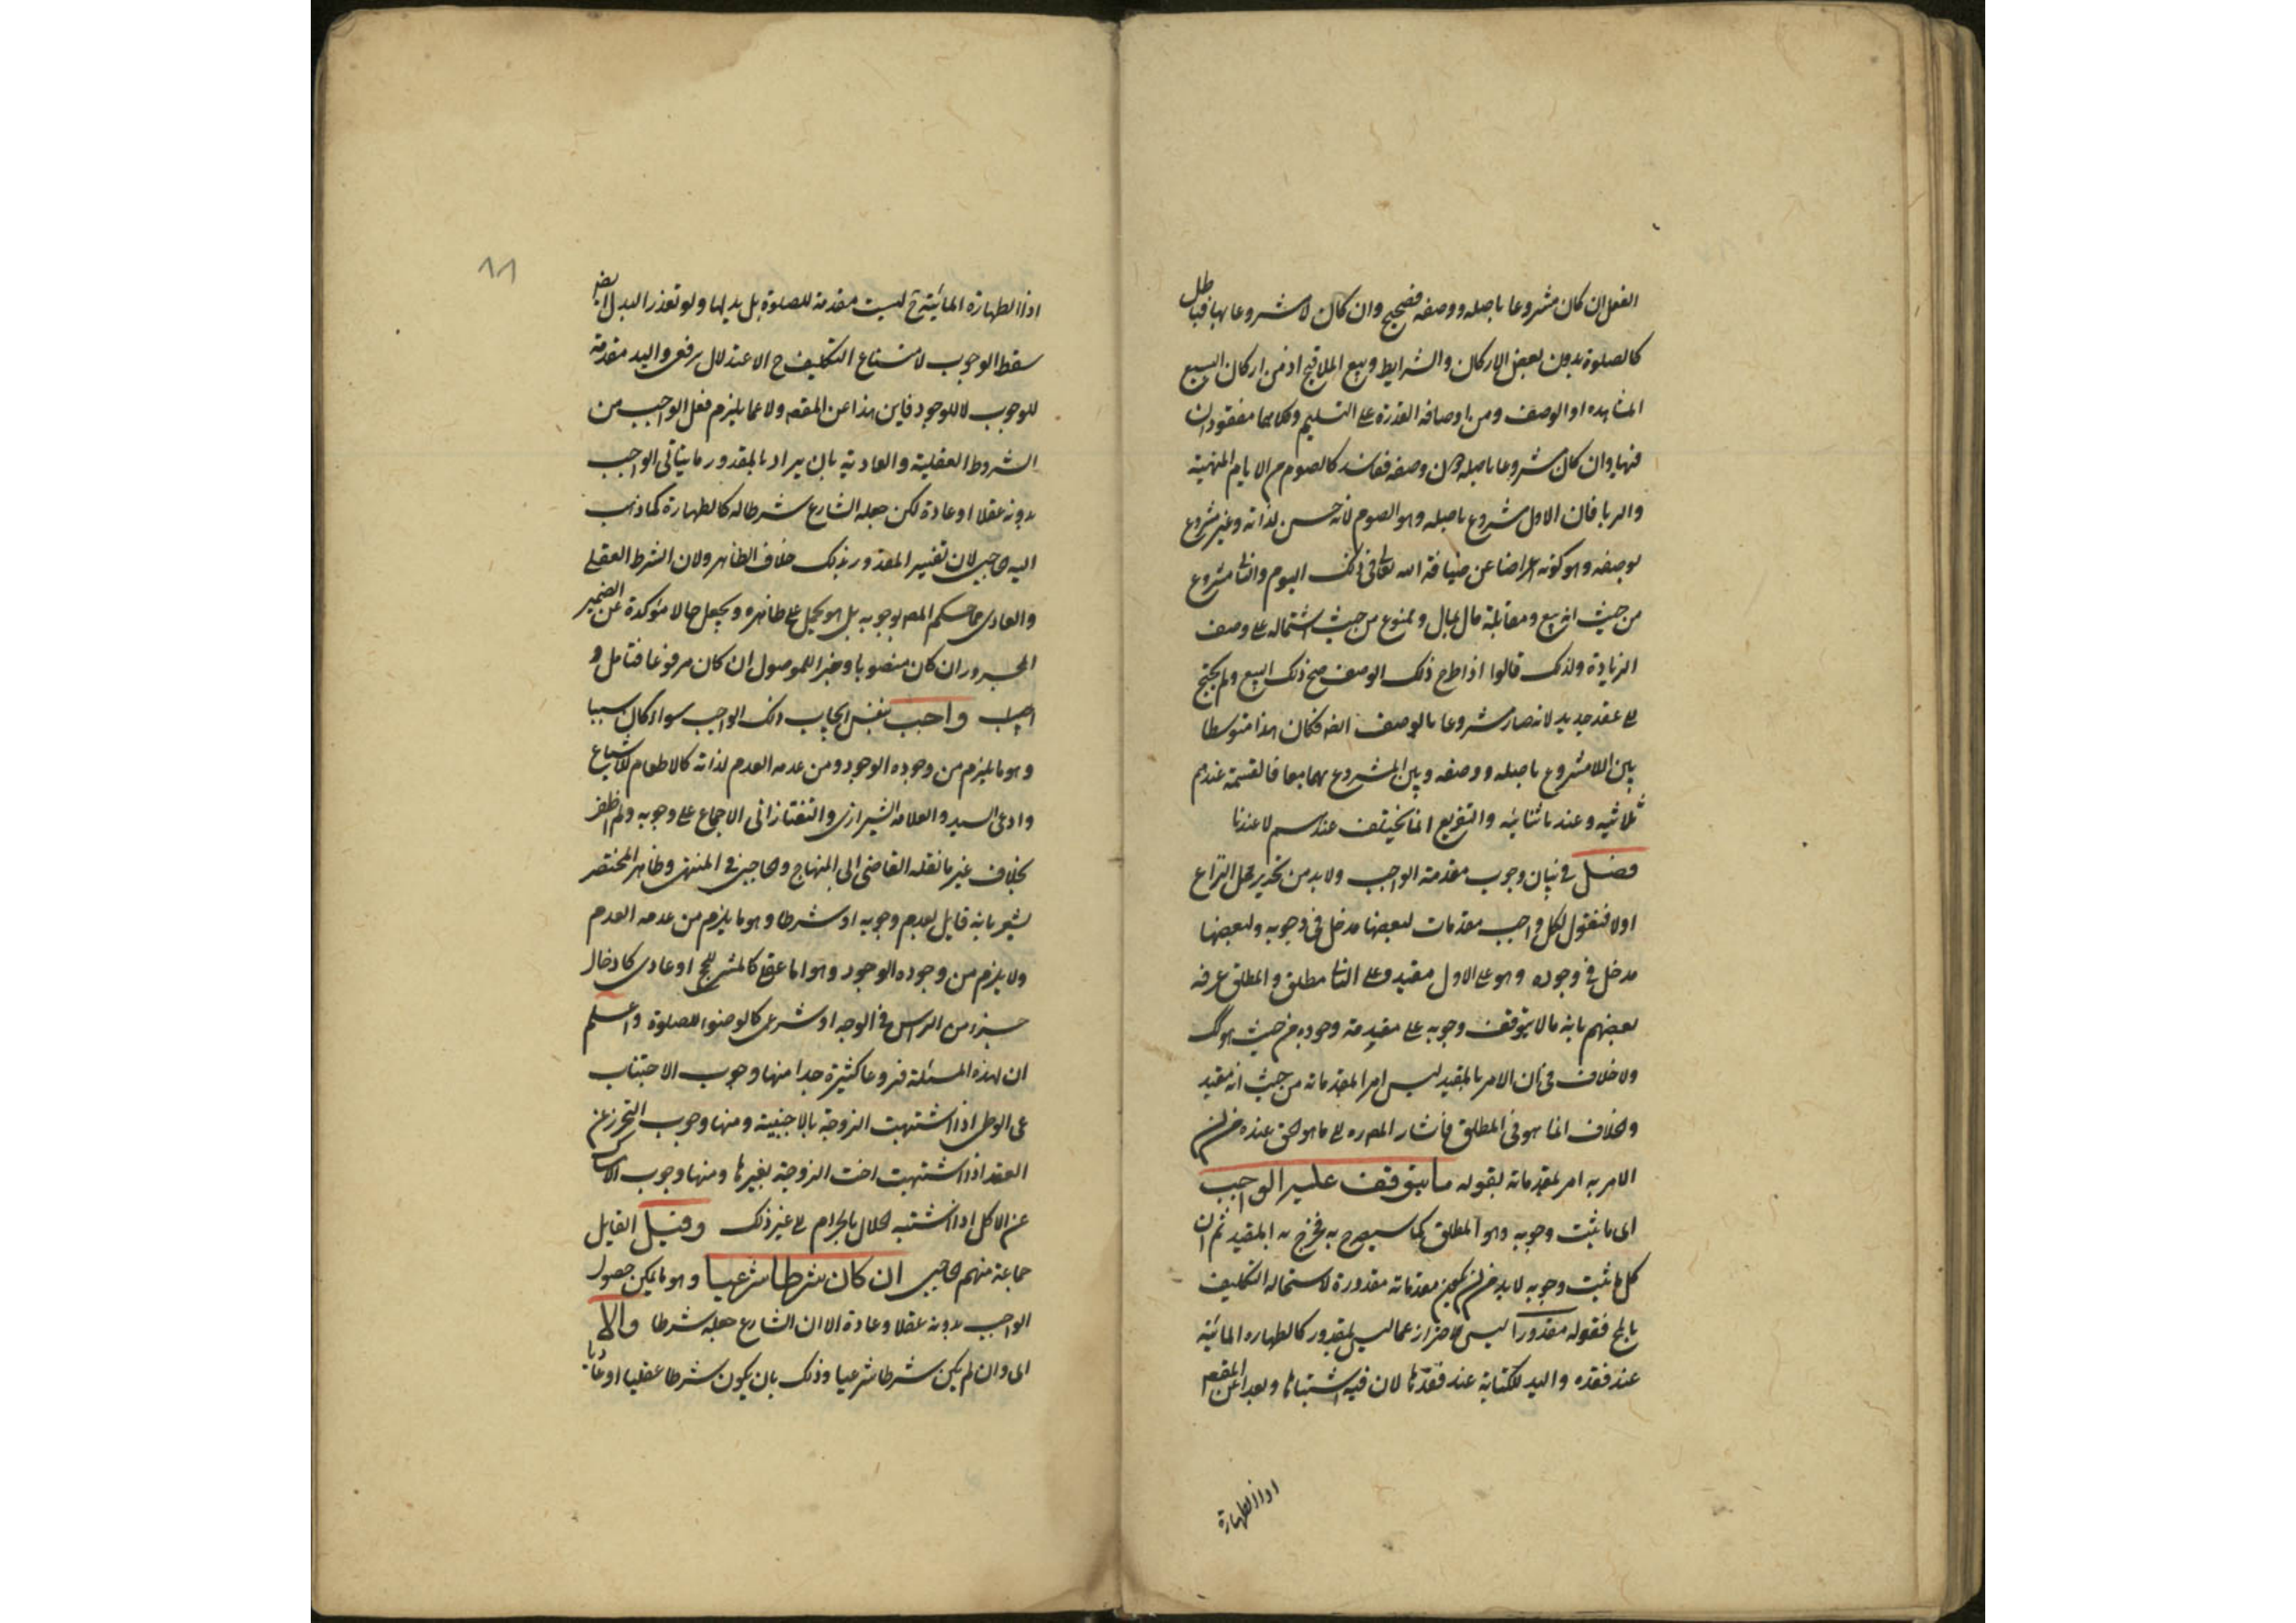 الفعل ان كان مشروعا باصله ووصفه فصحيح وان كان لا مشروعا بهما فباطل
كالصلوة بدون بعض الاركان والشرايط وبيع الملاقيح اذ من اركان البيع
المشاهدة او الوصف ومن اوصافه القدرة على التسليم وكلاهما مفقودان
فيها وان كان مشروعا باصله دون وصفه ففاسد كالصوم من الايام المنهية
والربا فان الاول مشروع باصله وهو الصوم لانه حسن لذاته وغير مشروع
بوصفه وهو كونه اعراضا عن ضيافة الله تعالى في ذلك اليوم والثا مشروع
من حيث انه بيع ومقابلة مال بمال وممنوع من حيث اشتماله على وصف
الزيادة ولذلك قالوا اذا طرح ذلك الوصف صح ذلك البيع ولم يحتج
الى عقد جديد لانه صار مشروعا بالوصف ايضا فكان هذا متوسطا
بين اللامشروع باصله ووصفه وبين المشروع بهما معا فالقسمة عندهم
ثلاثية وعندنا ثنائية والتفريع انما يختلف عندهم لا عندنا
فصل في بيان وجوب مقدمة الواجب ولا بد من تحرير محل النزاع
اولا فنقول لكل واجب مقدمات لبعضها مدخل في وجوبه ولبعضها
مدخل في وجوده وهو على الاول مقيد وعلى الثا مطلق والمطلق عرفه
بعضهم بانه ما لا يتوقف وجوبه على مقدمة وجوده من حيث هو ك
ولا خلاف في ان الامر بالمقيد ليس امرا بمقدماته من حيث انه مقيد
والخلاف انما هو في المطلق فاشار المص ره الى ما هو الحق عنده من ان
الامر به امر بمقدماته بقوله ما يتوقف عليه الواجب
اى ما يثبت وجوبه وهو المطلق كما سيصرح به فخرج به المقيد ثم ان
كل ما ثبت وجوبه لا بد من ان يكون مقدماته مقدورة لاستحاله التكليف
بالمح فقوله مقدورا ليس لاحتراز عما ليس بمقدور كالطهاره المائية
عند فقده واليد للكتابة عند فقدها لان فيه اشتباها وبعدا عن المقصد
اذا الطهارة
٨١
اذا الطهارة المائية ح ليست مقدمة للصلوة بل بدلها ولو تعذر البدل ايضا
سقط الوجوب لامتناع التكليف ح الا عند لال يرفعى واليد مقدمة
للوجوب لا للوجود فاين هذا عن المقصد ولا عما يلزم فعل الواجب من
الشروط العقلية والعادية بان يراد بالمقدور ما يتاتى الواجب
بدونه عقلا او عادة لكن جعله الشارع شرطا له كالطهارة كما ذهب
اليه الحاجبى لان تفسير المقدور بذلك خلاف الظاهر ولان الشرط العقلى
والعادى مما حكم المص بوجوبه بل هو يحمل على ظاهره ويجعل حالا مؤكدة عن الضمير
المجرور ان كان منصوبا وخبرا للموصول ان كان مرفوعا فتامل و
واجب بنفس ايجاب ذلك الواجب سواء كان سببا
وهو ما يلزم من وجوده الوجود ومن عدمه العدم لذاته كالاطعام للاشباع
وادعى السيد والعلامة الشيرازى والتفتازانى الاجماع على وجوبه ولم اظفر
بخلاف غير ما نقله القاضى الى المنهاج والحاجبى في المنتهى وظاهر المختصر
يشعر بانه قايل بعدم وجوبه او شرطا وهو ما يلزم من عدمه العدم
ولا يلزم من وجوده الوجود وهو اما عقلى كالمشى للحج او عادى كادخال
جزء من الراس في الوجه او شرعى كالوضوء للصلوة واعلم
ان لهذه المسئلة فروعا كثيرة جدا منها وجوب الاجتناب
عن الوطى اذا اشتبهت الزوجة بالاجنبية ومنها وجوب التحرز عن
العقد اذا اشتبهت اخت الزوجة بغيرها ومنها وجوب الامساك
عن الاكل اذا اشتبه الحلال بالحرام الى غير ذلك وقيل القايل
جماعة منهم الحاجبى ان كان شرطا شرعيا وهو ما يمكن حصول
الواجب بدونه عقلا وعادة الا ان الشارع جعله شرطا والا
اى وان لم يكن شرطا شرعيا وذلك بان يكون شرطا عقليا او عاديا